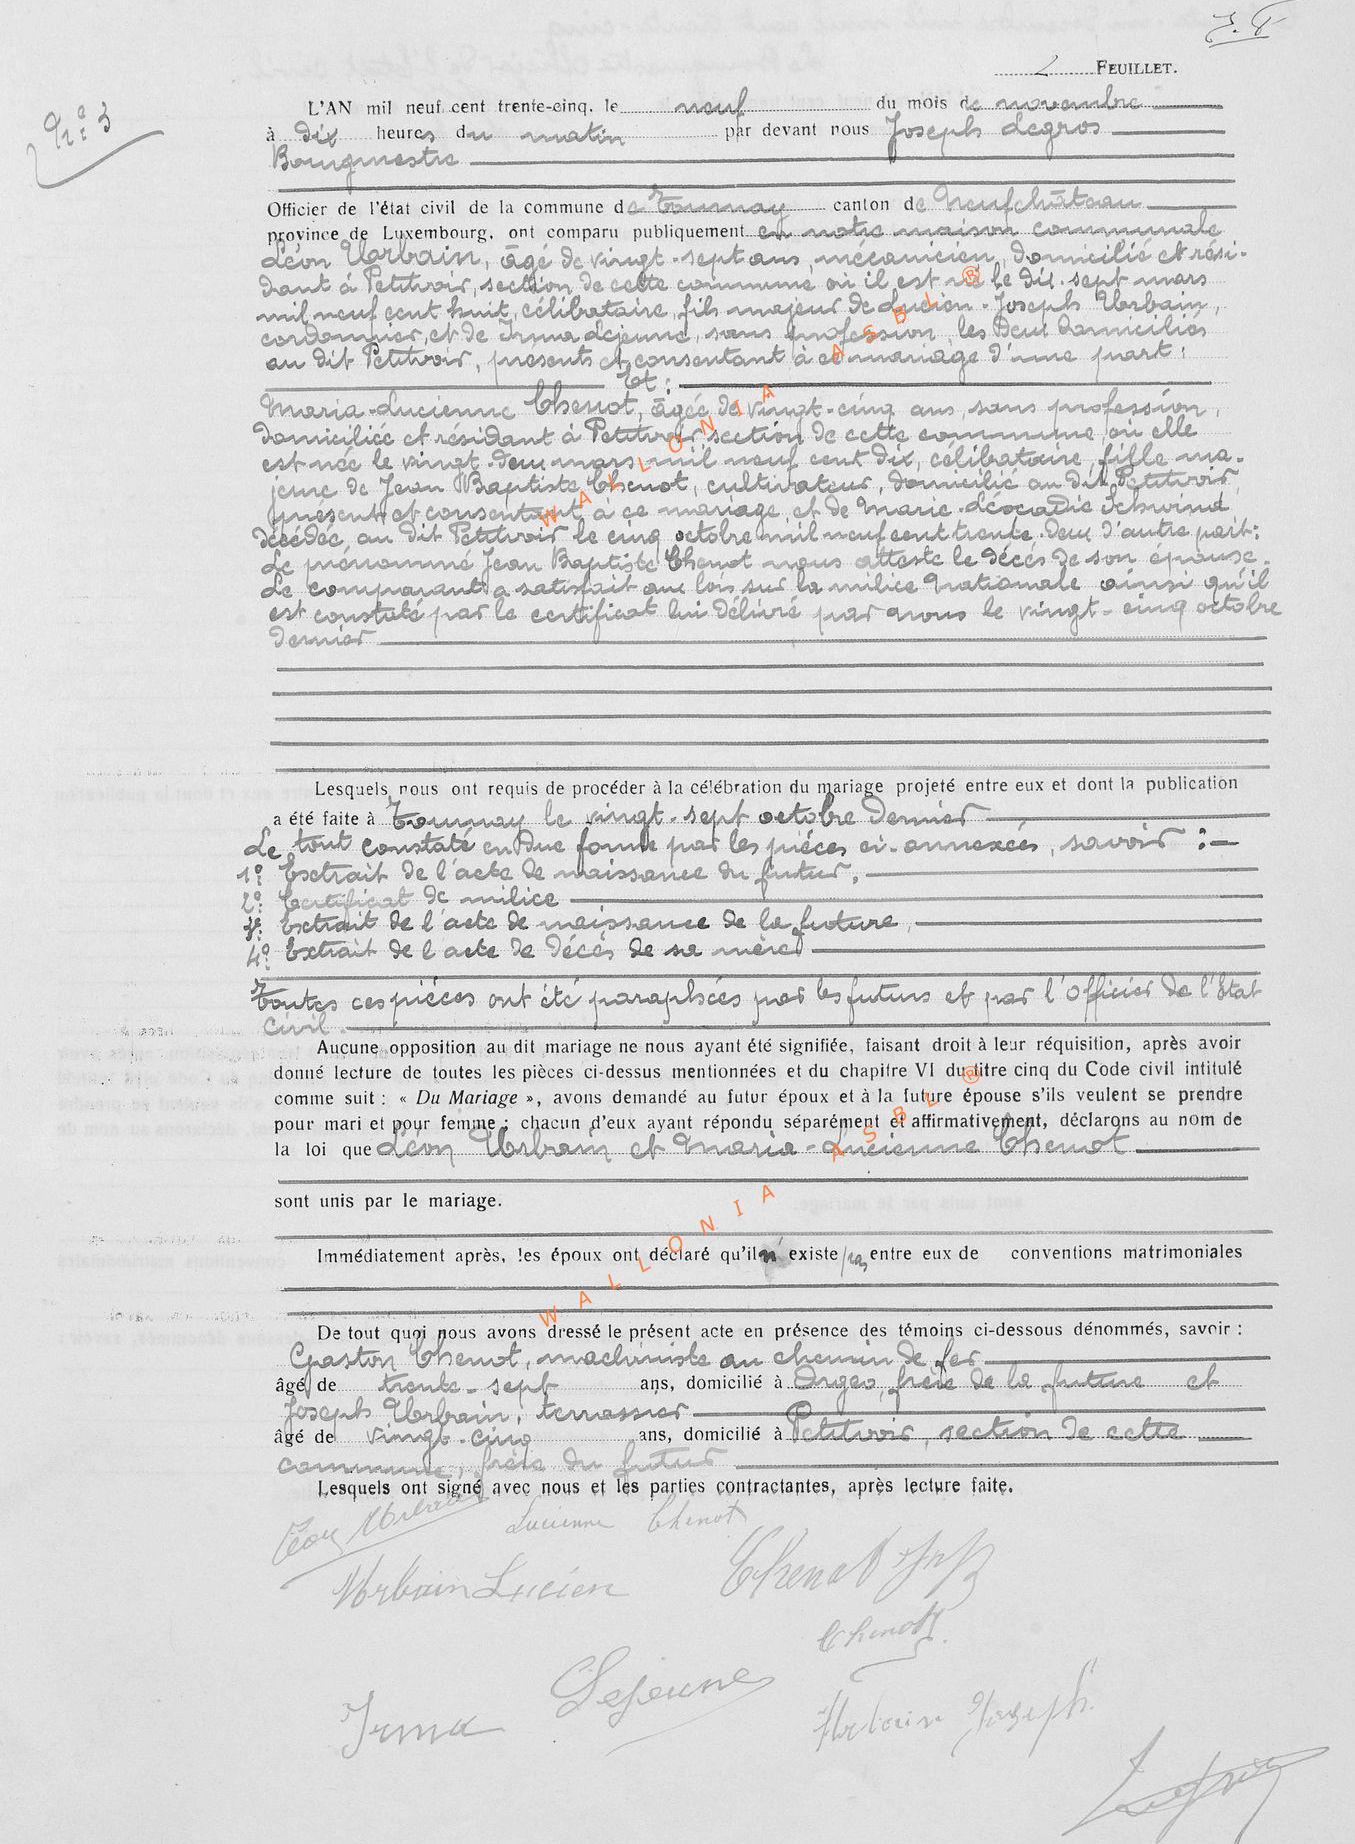 2 FEUILLET.
Nº 3
L'AN mil neuf cent trente-cinq, le neuf du mois de novembre
à dix heures du matin par devant nous Joseph Legros
Bourgmestre
Officier de l'état civil de la commune de Tournay canton de Neufchâteau
province de Luxembourg, ont comparu publiquement en notre maison communale
Léon Urbain, âgé de vingt-sept ans, mécanicien, domicilié et rési-
dant à Petitvoir, section de cette commune où il est né le dix-sept mars
mil neuf cent huit, célibataire, fils majeur de Lucien-Joseph Urbain,
cordonnier, et de Irma Lejeune, sans profession, les deux domiciliés
au dit Petitvoir, présents et consentant à ce mariage d'une part:
Et:
Maria-Lucienne Chenot, âgée de vingt-cinq ans, sans profession,
domiciliée et résidant à Petitvoir, section de cette commune, où elle
est née le vingt-deux mars mil neuf cent dix, célibataire, fille ma-
jeure de Jean Baptiste Chenot, cultivateur, domicilié au dit Petitvoir,
présent et consentant à ce mariage, et de Marie-Léocadie Schwind
décédée au dit Petitvoir le cinq octobre mil neuf cent trente-deux d'autre part:
Le prénommé Jean Baptiste Chenot nous atteste le décès de son épouse.
Le comparant a satisfait aux lois sur la milice nationale ainsi qu'il
est constaté par le certificat lui délivré par nous le vingt-cinq octobre
dernier
Lesquels nous ont requis de procéder à la célébration du mariage projeté entre eux et dont la publication
a été faite à Tournay le vingt-sept octobre dernier
Le tout constaté en due forme par les pièces ci-annexées, savoir :
1º: Extrait de l'acte de naissance du futur,
2º: Certificat de milice
3º: Extrait de l'acte de naissance de la future,
4º: Extrait de l'acte de décès de sa mère
Toutes ces pièces ont été paraphées par les futurs et par l'Officier de l'Etat
civil.
Aucune opposition au dit mariage ne nous ayant été signifiée, faisant droit à leur réquisition, après avoir
donné lecture de toutes les pièces ci-dessus mentionnées et du chapitre VI du titre cinq du Code civil intitulé
comme suit : « Du Mariage », avons demandé au futur époux et à la future épouse s'ils veulent se prendre
pour mari et pour femme ; chacun d'eux ayant répondu séparément et affirmativement, déclarons au nom de
la loi que Léon Urbain et Maria-Lucienne Chenot
sont unis par le mariage.
Immédiatement après, les époux ont déclaré qu'il n'existe pas entre eux de conventions matrimoniales
De tout quoi nous avons dressé le présent acte en présence des témoins ci-dessous dénommés, savoir :
Gaston Chenot, machiniste au chemin de fer
âgé de trente-sept ans, domicilié à Orgeo, frère de la future et
Joseph Urbain, terrassier
âgé de vingt-cinq ans, domicilié à Petitvoir, section de cette
commune, frère du futur
Lesquels ont signé avec nous et les parties contractantes, après lecture faite.
Léon Urbain Lucienne Chenot
Urbain Lucien Chenot
Chenot
Irma Lejeune
Urbain Joseph
Legros
WALLONIA ASBL ®
WALLONIA ASBL ®